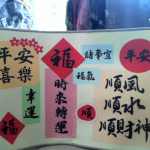 平安
喜樂
幸運
福
福
時來轉運
諸事宜
福氣
順
平安
順風
順水
順財神